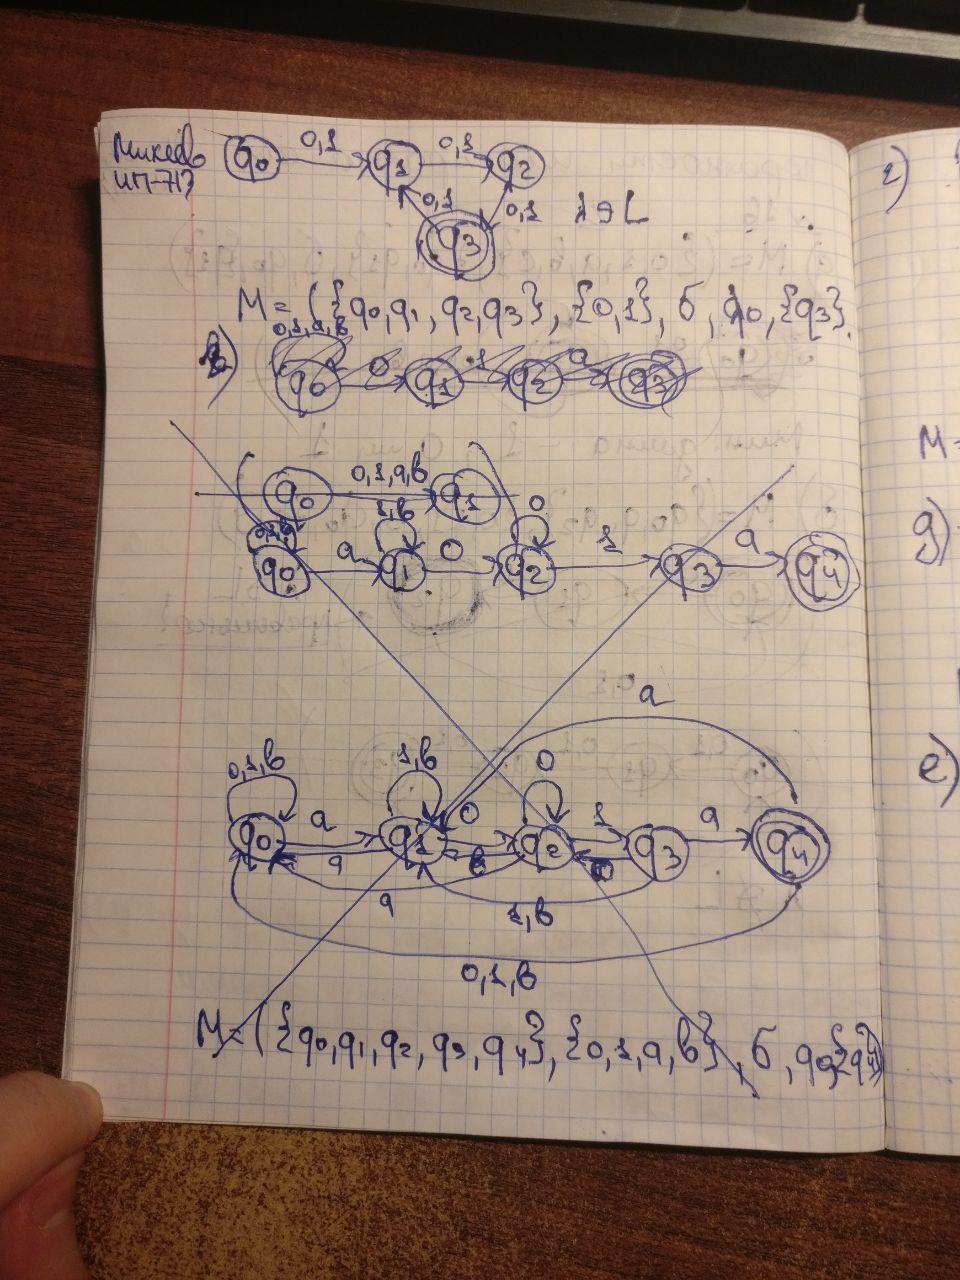 Микеев
ИП-717
q0 0,1 q1 0,1 q2
0,1 0,1 λ∉L
q3
M = ({q0,q1,q2,q3}, {0,1}, б, q0, {q3}.
0,1,a,b
в) q0 0 q1 1 q2 a q3
q0 0,1,a,b q1
0,1,b 1,b 0
q0 a q1 0 q2 1 q3 a q4
a
0,1,b 1,b 0
q0 a q1 0 q2 1 q3 a q4
a
a 1,b
0,1,b
M = ({q0,q1,q2,q3,q4}, {0,1,a,b}, б, q0, {q4})
г)
M=
д)
е)